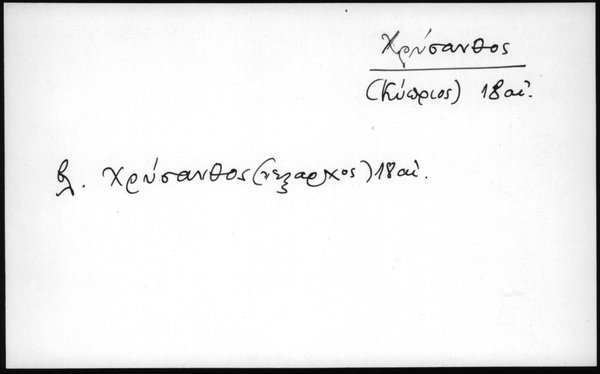 Χρύσανθος
(Κύπριος) 18 αἰ.
βλ. Χρύσανθος (νέξαρχος) 18 αἰ.